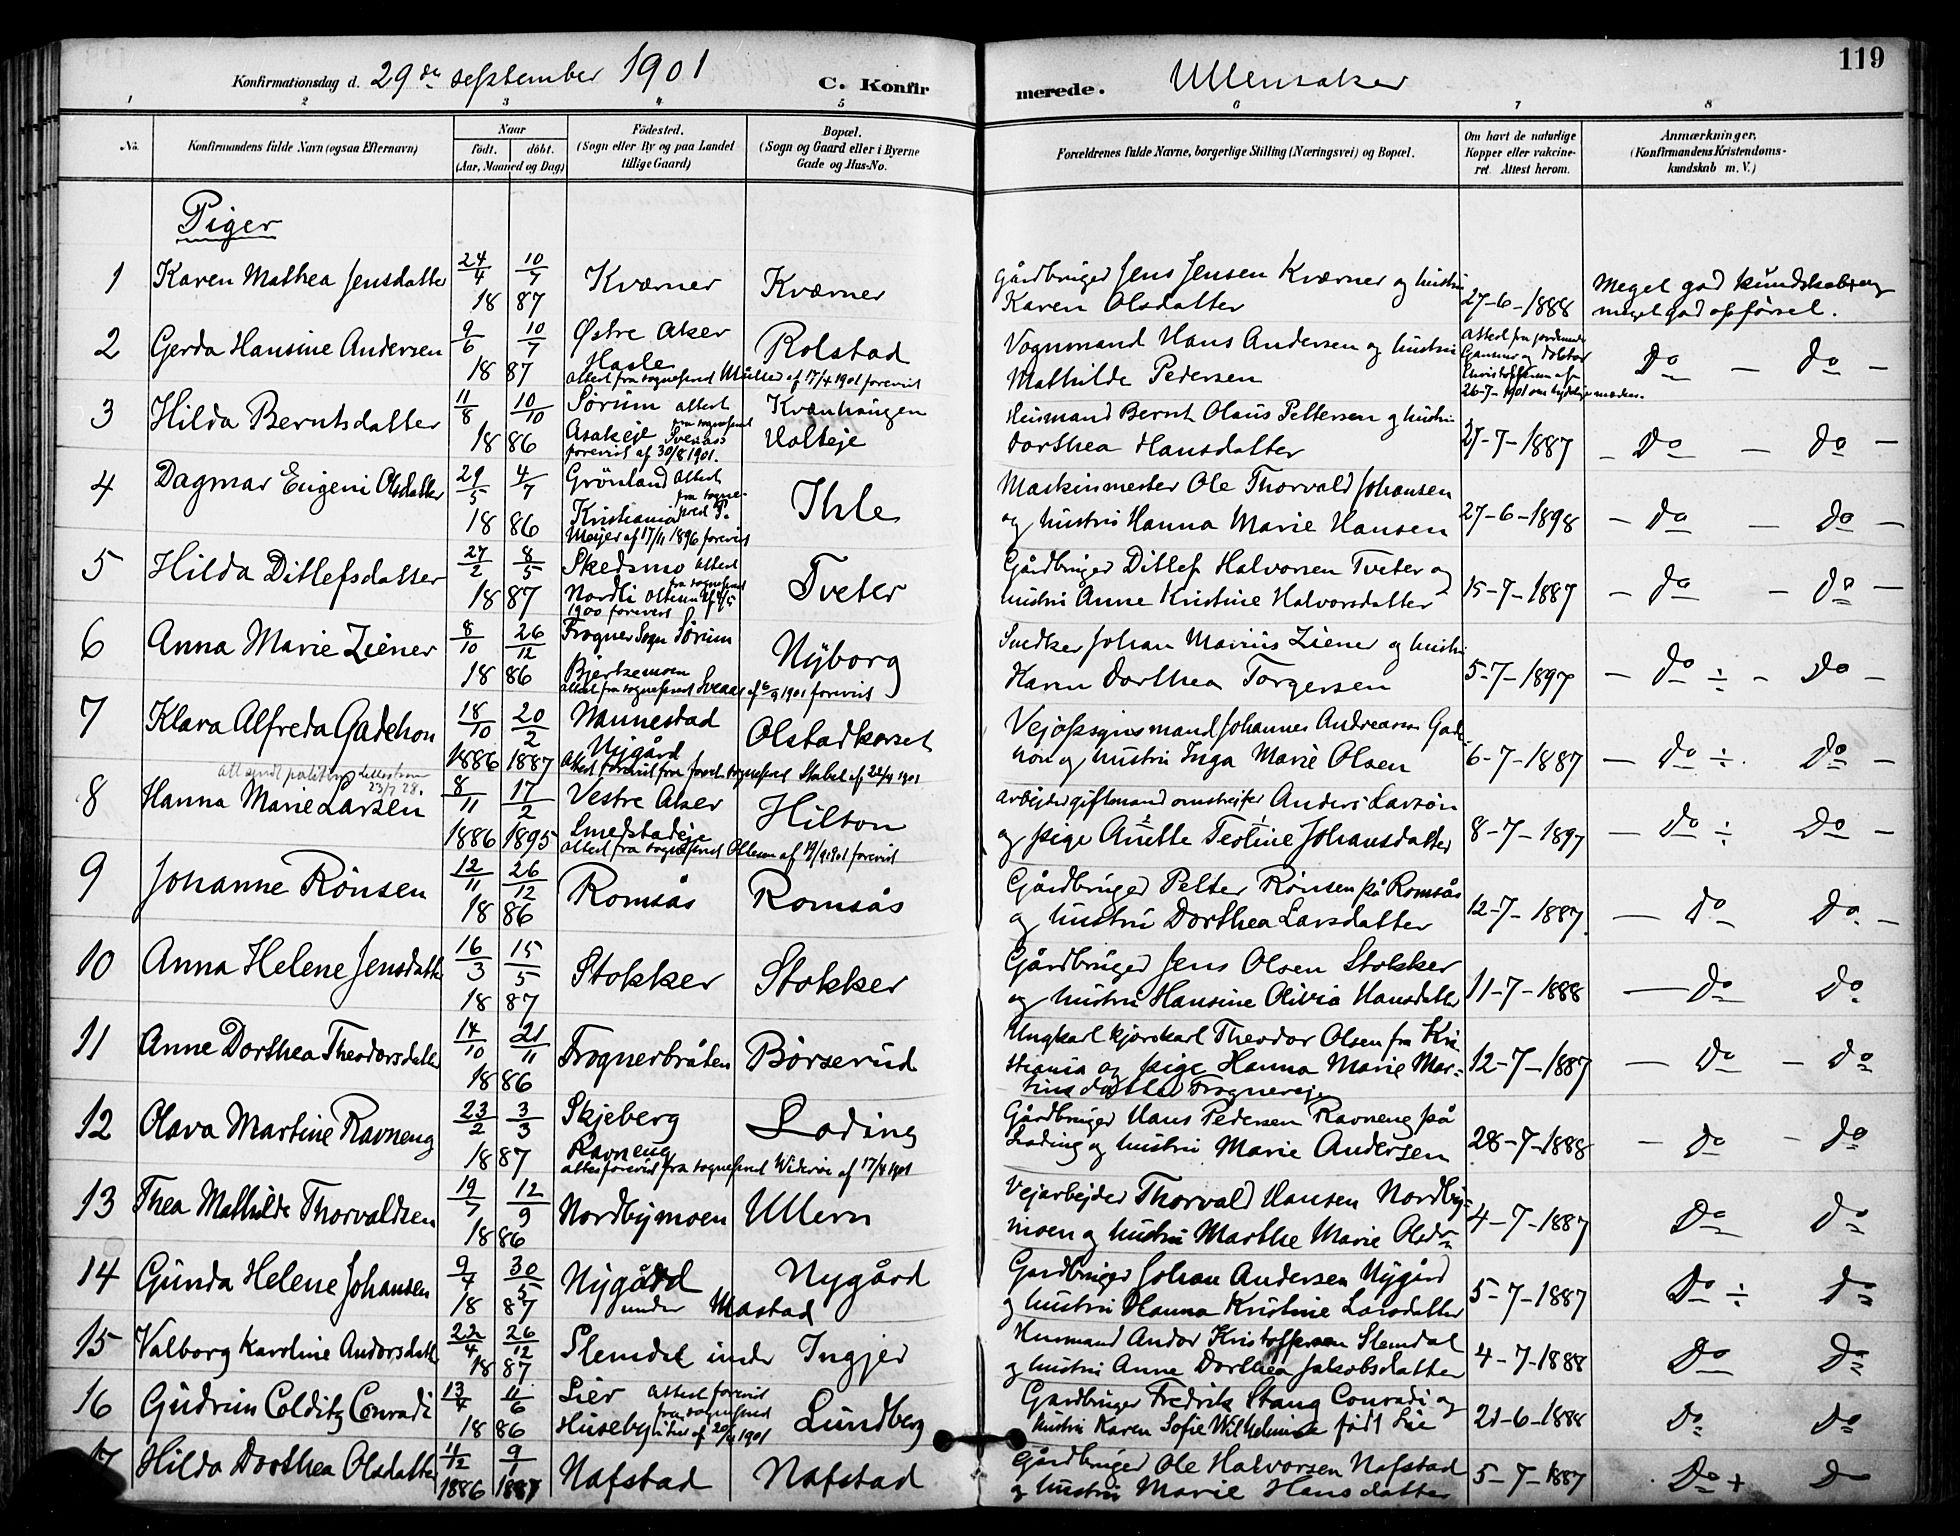 119
Konfirmationsdag d. 29de september 1901 C. Konfirmerede. Ullensaker
1 2 3 4 5 6 7 8
No. Konfirmandens fulde Navn (ogsaa Efternavn) Naar født. døbt. (Aar, Maaned og Dag) Fødested. (Sogn eller By og paa Landet tillige Gaard) Bopæl. (Sogn og Gaard eller i Byerne Gade og Hus-No. Forældrenes fulde Navne, borgerlige Stilling (Næringsvei) og Bopæl. Om havt de naturlige Kopper eller vakcineret. Attest herom. Anmærkninger, (Konfirmandens Kristendomskundskab m. V.)
Piger
1 Karen Mathea Jensdatter 24/4 10/7 1887 Kværner Kværner Gårdbruger Jens Jensen Kværner og hustru
Karen Olsdatter 27-6-1888 Meget god kundskab og
meget god opførsel.
2 Gerda Hansine Andersen 9/6 10/7 1887 Østre Aker Rolstad Vognmand Hans Andersen og hustru
Hasle Mathilde Pedersen Do — Do —
attest fra sognepræst Müller af 17/4 1901 forevist
3 Hilda Berntsdatter 11/8 10/10 1886 Sørum attest fra sognepræst Kvænhaugen
Asakeje Svenåss forevist af 30/8 1901. Holteje Husmand Bernt Olaus Pettersen og hustru
Dorthea Hansdatter 27-7-1887 — Do — Do —
4 Dagmar Eugeni Olsdatter 29/5 4/7 1886 Grønland Attest fra sognepræst P.
Kristiania Meyer af 17/11 1896 forevist Ihle Maskinmester Ole Thorvald Johansen
og hustru Hanna Marie Hansen 27-6-1898 — Do — Do —
5 Hilda Ditlefsdatter 27/2 8/5 1887 Skedsmo Attest fra sognepræst
Nordli 1900 forevist Tveter Gårdbruger Ditlef Halvorsen Tveter og
hustru Anne Kristine Halvorsdatter 15-7-1887 — Do — Do —
6 Anna Marie Ziener 8/10 26/12 1886 Frogner Sogn Sørum
Bjertsemoen Nyborg Snedker Johan Marius Ziener og hustru
attest fra sognepræst af 6/9 1901 forevist Karen Dorthea Torgersen 5-7-1897 — Do ÷ — Do —
7 Klara Alfreda Gadehon 18/10 1886 20/2 1887 Nannestad
Nygård Olstadkorset Johannes Andreasen Gade-
hon og hustru Inga Marie Olsen 6-7-1887 — Do ÷ Do —
Attest forevist fra sognepræst Stabel af 22/4 1901
8 Hanna Marie Larsen 8/11 1886 17/2 1895 Vestre Aker
23/7 28.
Smedstadeje Hilton Arbejder gift mand omstreifer Anders Larsön
og pige Anette Teoline Johansdatter 8-7-1897 — Do ÷ Do —
attest fra sognepræst Olsen af 19/9 1901 forevist
9 Johanne Rönsen 12/11 26/12 1886 Romsås Romsås Gårdbruger Petter Rönsen på Romsås
og hustru Dorthea Larsdatter 12-7-1887. — Do Do —
10 Anna Helene Jensdatter 16/3 15/5 1887 Stokker Stokker Gårdbruger Jens Olsen Stokker
og hustru Hansine Olivia Hansdatter 11-7-1888 — Do Do
11 Anne Dorthea Theodorsdatter 14/10 21/11 1886 Frognerbråten Børserud Ungkarl kjørekarl Theodor Olsen fra Kri
stiania og pige Hanna Marie Mar-
tinsdatter Frognereje 12-7-1887 — Do — Do
12 Olava Martine Ravneng 23/2 3/3 1887 Skjeberg
Ravneng Lading Gårdbruger Hans Pedersen Ravneng på
Lading og hustru Marie Andersen 28-7-1888 — Do — Do
attest forevist fra sognepræst Widerøe af 17/4 1901
13 Thea Mathilde Thorvaldsen 19/7 12/9 1886 Nordbymoen Ullern Vejarbejder Thorvald Hansen Nordby-
moen og hustru Marthe Marie Olsdr 4-7-1887 Do Do
14 Gunda Helene Johansen 9/4 30/5 1887 Nygård
under Mastad Nygård Gardbruger Johan Andersen Nygård
og hustru Hanna Kristine Larsdatter 5-7-1887 Do ÷ Do
15 Valborg Karoline Andorsdatter 22/4 26/12 1887 Slemdal under Ingjer Husmand Andor Kristoffersen Slemdal
og hustru Anne Dorthea Jakobsdatter 4-7-1888 Do Do
16 Gudrun Colditz Conradi 13/4 11/6 1886 Lier Attest forevist fra sognepræst
Huseby af 20/4 1901 Lundberg Gardbruger Fredrik Stang Conradi og
hustru Karen Sofie Wilhelmine født Lie 21-6-1888 Do Do
17 Hilda Dorthea Olsdatter 11/12 1886 9/1 1887 Nafstad Nafstad Gårdbruger Ole Halvorsen Nafstad
og hustru Marie Hansdatter 5-7-1887 Do + Do